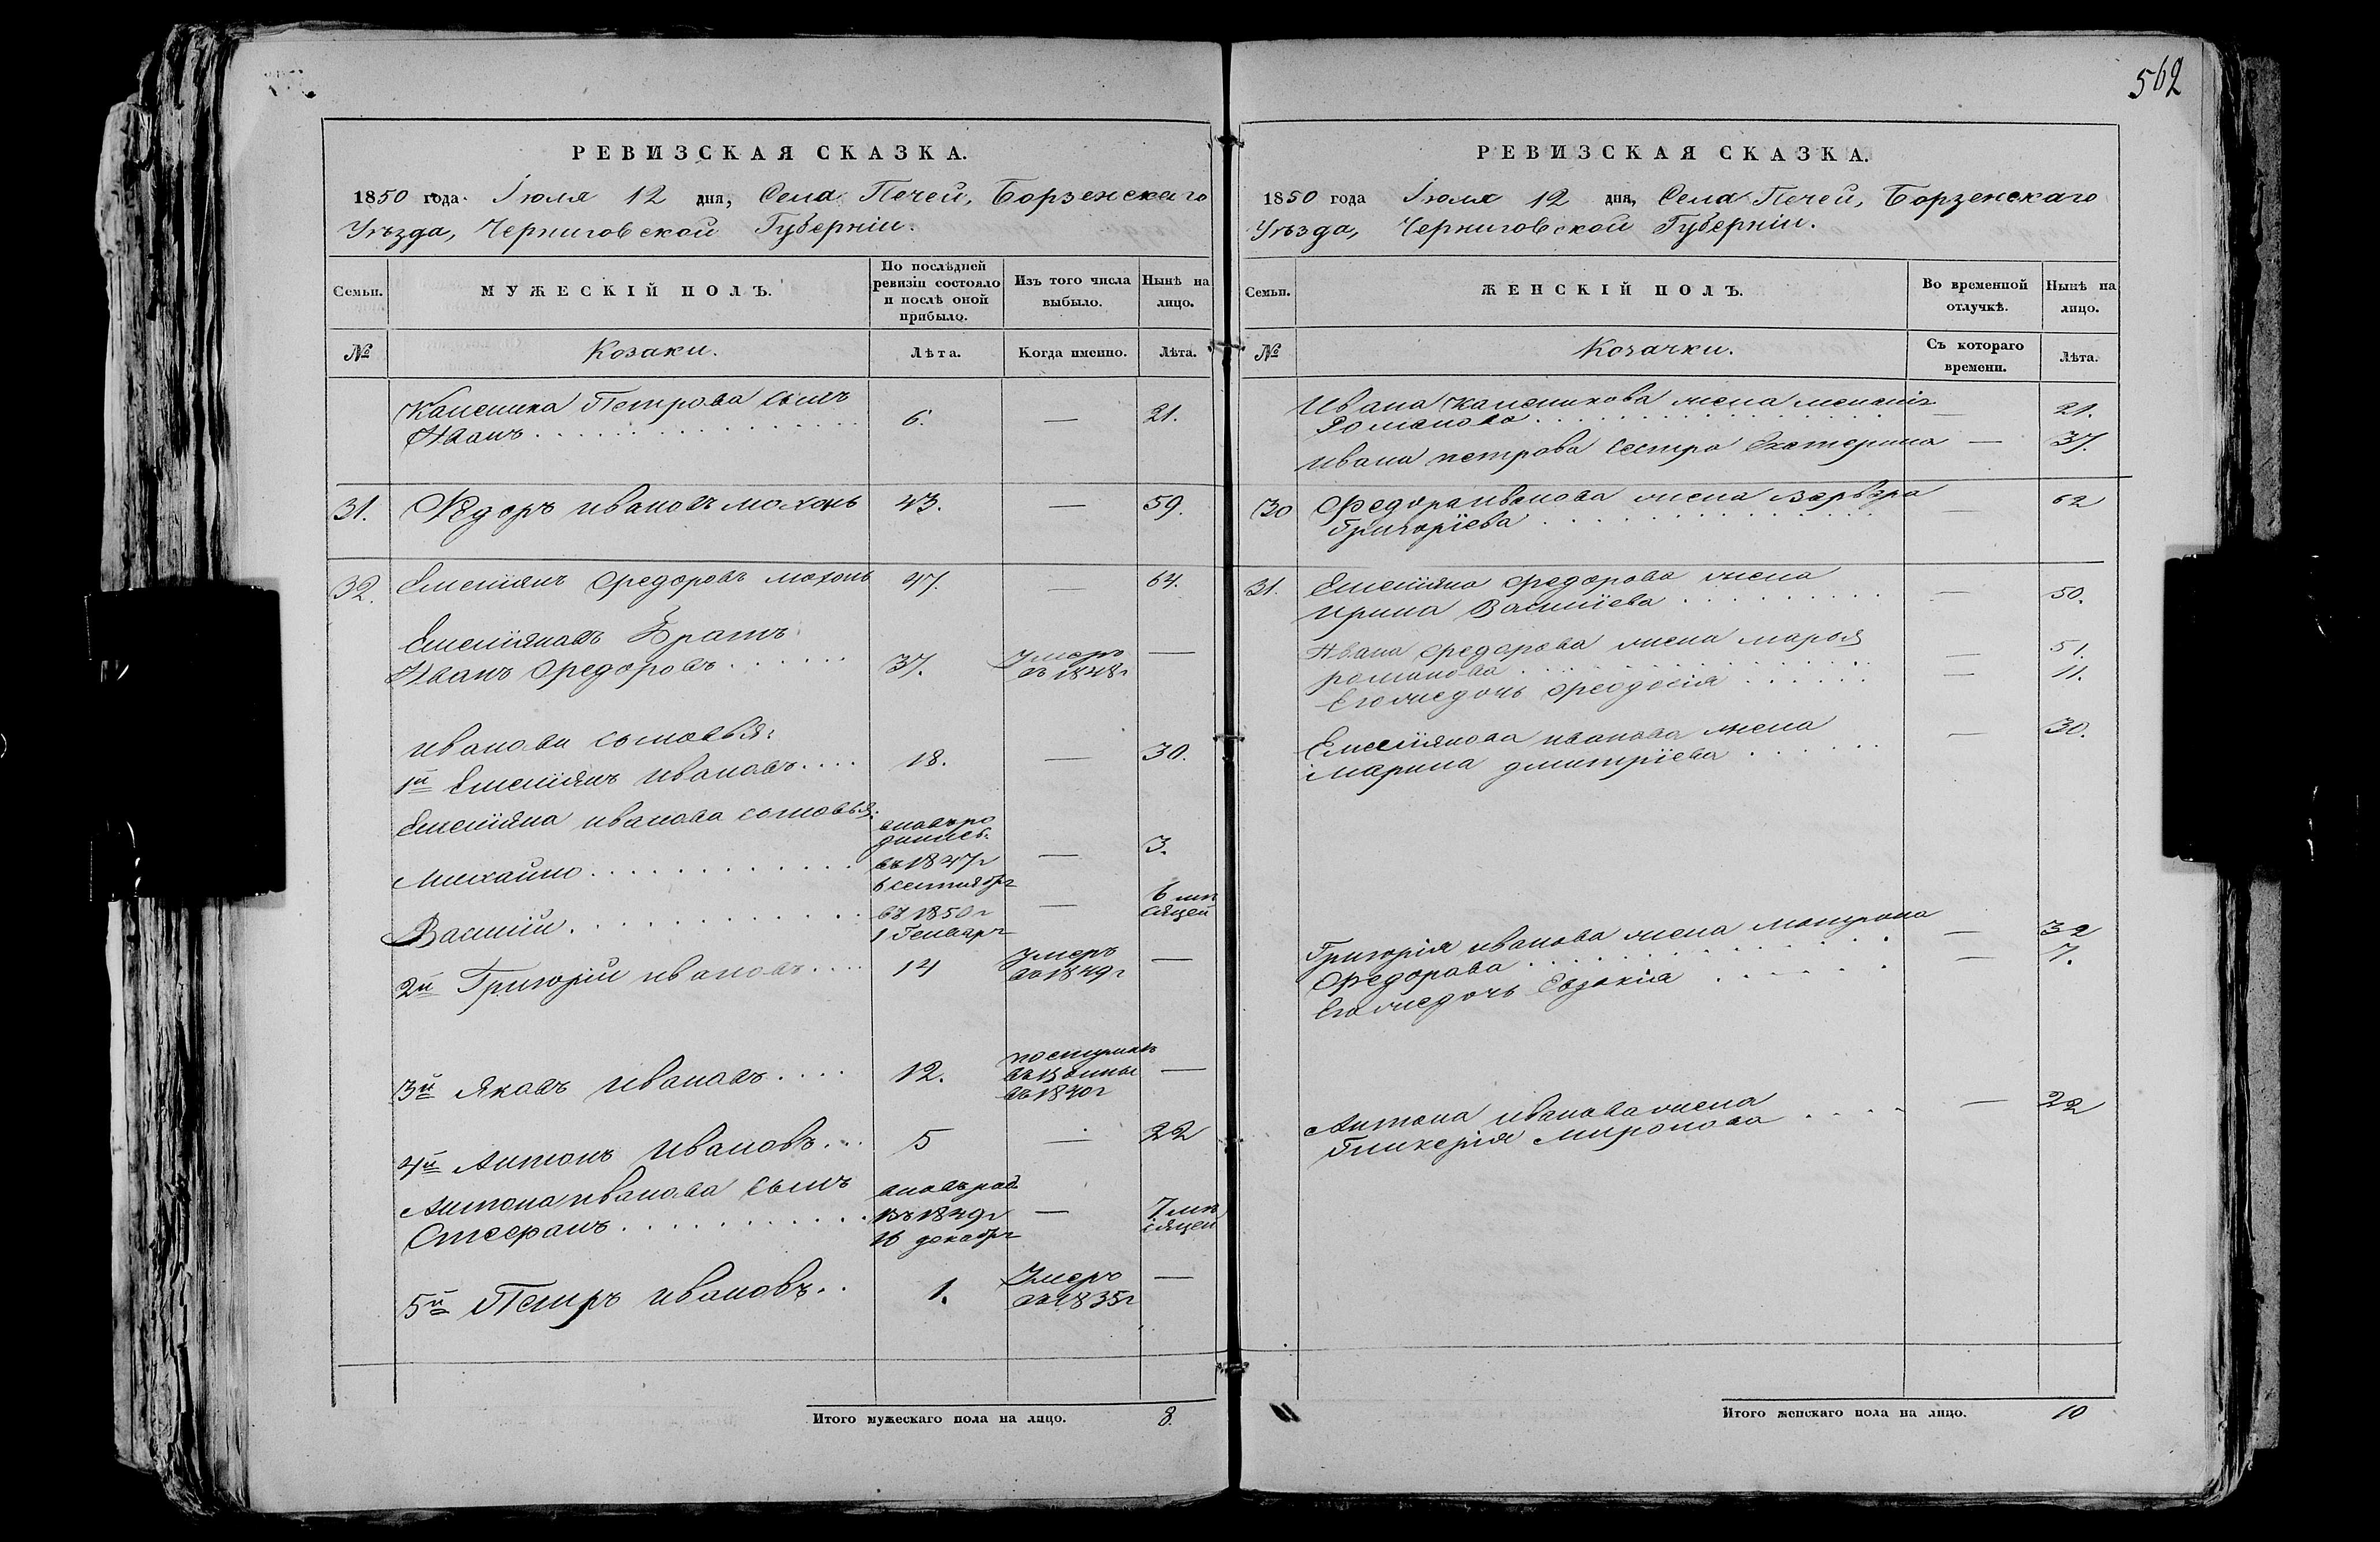 562
РЕВИЗСКАЯ СКАЗКА.
1850 года. Іюля 12 дня, Села Печей, Борзенскаго
Уѣзда, Черниговской Губерніи.
Семьи.
МУЖЕСКІЙ ПОЛЪ.
По послѣдней ревизіи состояло и послѣ оной прибыло.
Изъ того числа выбыло.
Нынѣ на лицо.
№
Козаки.
Лѣта.
Когда именно.
Лѣта.
Калиника Петрова сынъ
Иванъ . . . . 6. — 21.
31. Федоръ Ивановъ Мохонь 43. — 59.
32. Емелiянъ Федоровъ Мохонь 47. — 64.
Емелiяновъ Братъ
Иванъ Федоровъ . . . . 37. Умеръ въ 1848г —
Ивана сыновья:
1й Емелiянъ Ивановъ . . . . 18. — 30.
Емелiяна Иванова сыновья:
Михайло . . . . вновь родились. въ 1847г 6 сентября — 3.
Василій . . . . въ 1850г 1 Генваря — 6 мѣсяцей
2й Григорій Ивановъ . . . . 14 Умеръ въ 1849г —
3й Яковъ Ивановъ . . . . 12. поступилъ въ 1840г —
4й Антонъ Ивановъ . . . 5 — 22
Антона Иванова сынъ
Стефанъ . . . . вновь род. въ 1849г 16 декабря — 7 мѣсяцей
5й Петръ Ивановъ . . 1. Умеръ въ 1835г —
Итого мужескаго пола на лицо. 8.
РЕВИЗСКАЯ СКАЗКА.
1850 года Іюля 12 дня, Села Печей, Борзенскаго
Уѣзда, Черниговской Губерніи.
Семьи.
ЖЕНСКІЙ ПОЛЪ.
Во временной отлучкѣ.
Нынѣ на лицо.
№
Козачки.
Съ котораго времени.
Лѣта.
Ивана Калиникова жена
Романова . . . . — 21.
Ивана Петрова сестра Екатерина — 37.
30 Федора Иванова жена Варвара
Григорiева . . . . — 62
31. Емелiяна Федорова жена
Ирина Василiева . . . . — 50.
Ивана Федорова жена Марья
Романова . . . . — 51.
Его же дочь Феодосія . . . . — 11.
Емелiянова Иванова жена
Марина Дмитрiева . . . . — 30.
Григорія Иванова жена Матрона
Федорова . . . . — 32
Его же дочь Евдокія . . . . — 7.
Антона Иванова жена
Гликерія Миронова . . . . — 22
Итого женскаго пола на лицо. 10